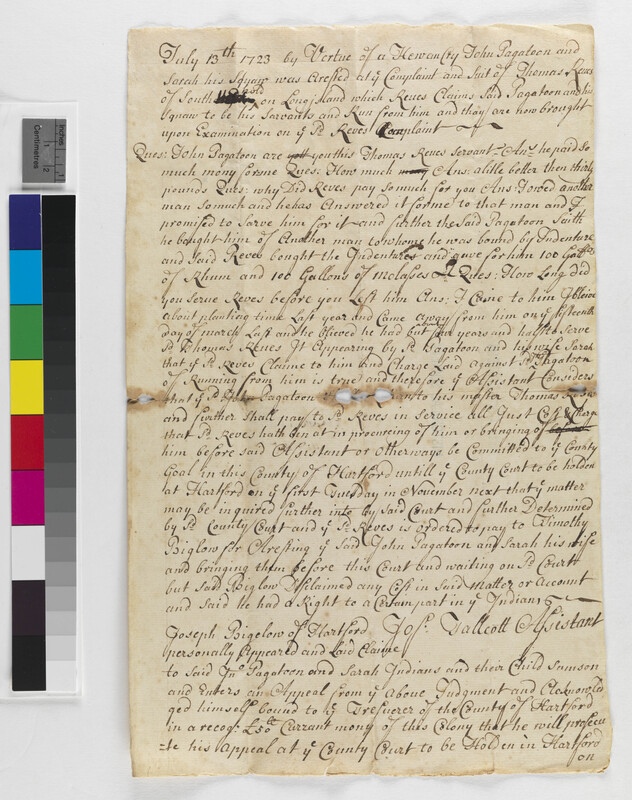 July 13th 1723 by Vertue of a Hewancry John Pagatoon and
Sarah his Squaw was Arested at ye Complaint and Suit of Thomas Reves
of South hold on Long Island which Reves Claims Said Pagatoon and his
Squaw to be his Servants and Run from him and thay are now brought
upon Examination on ye Sd Reves Complaint
Ques: John Pagatoon are you this Thomas Reves Servant - Ans: he paid so
much mony for me Ques: How much Ans: a litle better then thirty
pounds Ques: why Did Reves pay so much for you Ans: I owed another
man so much and he has Answered it for me to that man and I
promised to Sarve him for it and further the Said Pagatoon Saith
he bought him of Another man to whome he was bound by Indenture
and Said Reves bought the Indentures and gave for him 100 Gallns
of Rhum and 100 Gallons of Molasses Ques: How Long did
you Serve Reves before you Left him Ans: I Came to him
about planting time Last year and Came away from him on ye fifteenth
day of march Last and he had but years and half to Serve
Sd Thomas Reves It Appearing by Sd Pagatoon and his wife Sarah
that ye Sd Reves Claime to him and Charge Laid against Sd Pagatoon
of Running from him is true and therefore ye Assistant Considers
that ye Sd Pagatoon unto his master Thomas Reves
and further Shall pay to Sd Reves in Service all Just Cost & Charge
that Sd Reves hath ben at in procureing of him or bringing of
him before said Assistant or Otherways be Committed to ye County
Goal in this County of Hartford untill ye County Court to be holden
at Hartford on ye first Tuesday in November next that ye matter
may be inquired further into by Said Court and further Determined
by Sd County Court and ye Sd Reves is ordered to pay to Timothy
Biglow for Aresting ye Said John Pagatoon and Sarah his wife
and bringing them before this Court and waiting on Sd Court
but Said Biglow Disclaimed any Cost in Said matter or Account
and Said he had a Right to a Certain part in ye Indians
Jos: Tallcott Assistant
Joseph Bigelow of Hartford
personally Appeared and Laid Claime
to Said Jno Pagatoon and Sarah Indians and their Child Samson
and Enters an Appeal from ye Above Judgment and Acknowled
ged himself bound to ye Treasurer of the County of Hartford
in a recog: £50 Currant mony of this Colony that he will prosecu
te his Appeal at ye County Court to be Holden in Hartford
on
Centimetres
Inches
1
2